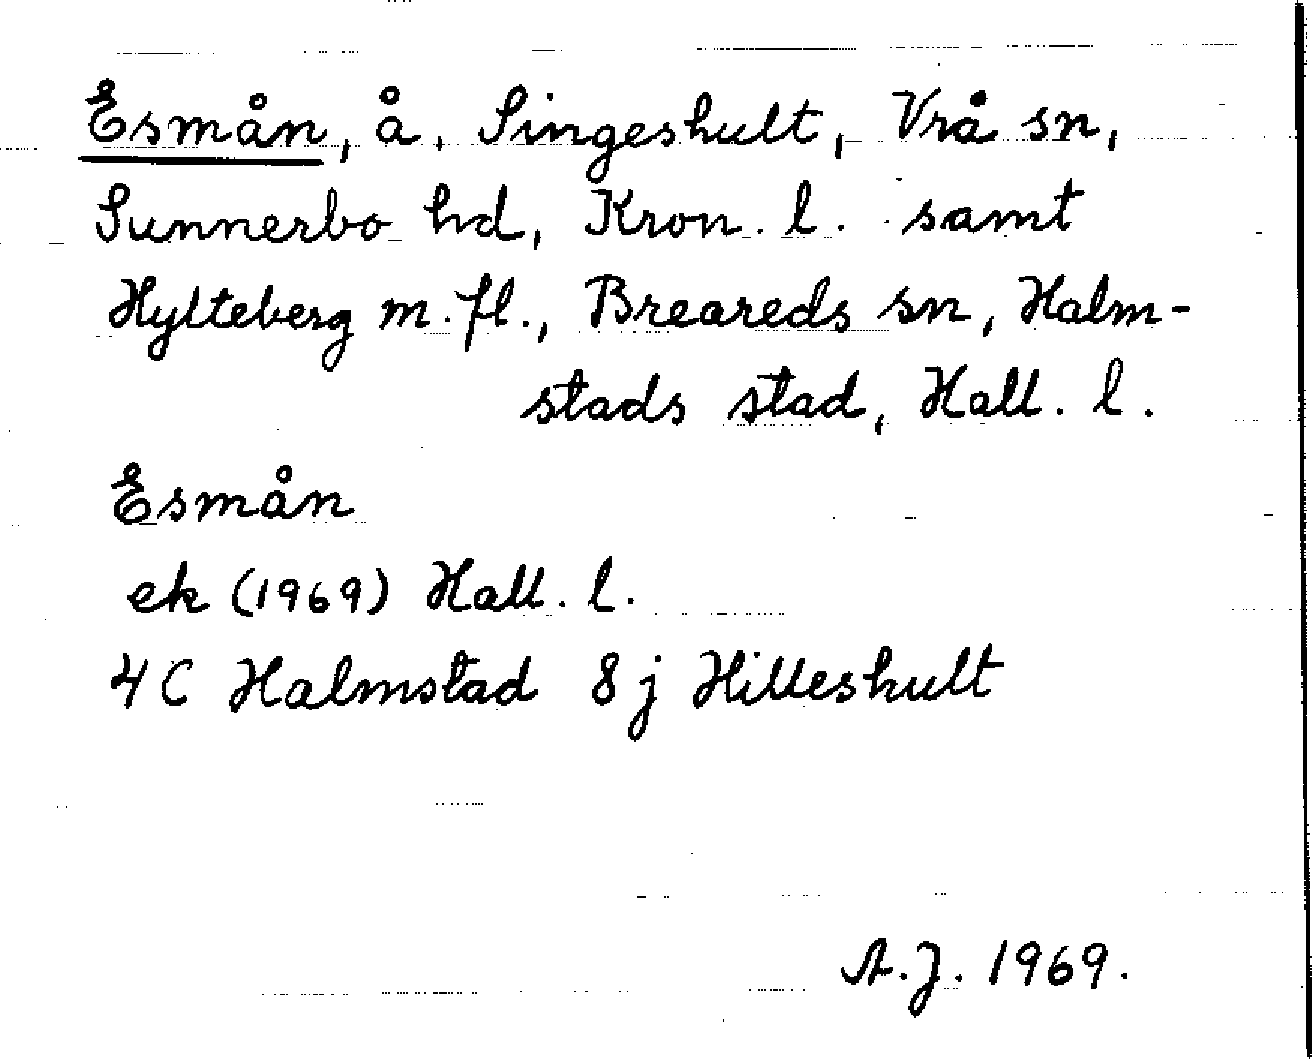 Esmån, å, Singeshult, Vrå sn,
Sunnerbo hd, Kron. l. samt
Hylteberg m. fl., Breareds sn, Halm-
stads stad, Hall. l.
Esmån
ek (1969) Hall. l.
4C Halmstad 8j Hilleshult
A.J. 1969.